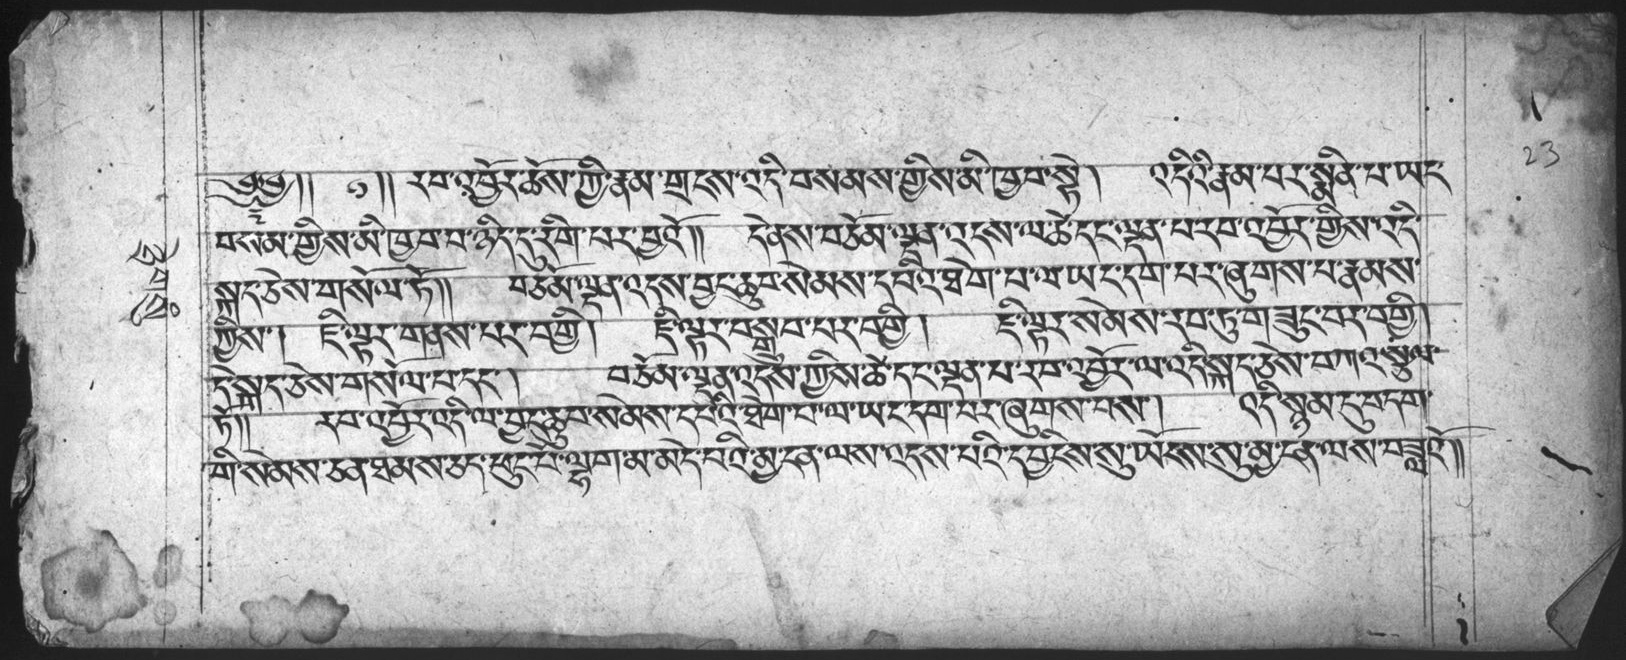 ༄༅།། ༡ །། རབ་འབྱོར་ཆོས་ཀྱི་རྣམ་གྲངས་འདི་བསམས་གྱིས་མི་ཁྱབ་སྟེ། འདིའི་རྣམ་པར་སྨིན་པ་ཡང་
བསམ་གྱིས་མི་ཁྱབ་པ་ཉིད་དུ་རིག་པར་བྱའོ།། དེ་ནས་བཅོམ་ལྡན་འདས་ལ་ཚེ་དང་ལྡན་པ་རབ་འབྱོར་གྱིས་འདི་
སྐད་ཅེས་གསོལ་ཏོ།། བཅོམ་ལྡན་འདས་བྱང་ཆུབ་སེམས་དཔའི་ཐེག་པ་ལ་ཡང་དག་པར་ཞུགས་པ་རྣམས་
ཀྱིས་། ཇི་ལྟར་གནས་པར་བགྱི། ཇི་ལྟར་བསྒྲུབ་པར་བགྱི། ཇི་ལྟར་སེམས་རབ་ཏུ་གཟུང་བར་བགྱི།
དེ་སྐད་ཅེས་གསོལ་པ་དང་། བཅོམ་ལྡན་འདས་ཀྱིས་ཚེ་དང་ལྡན་པ་རབ་འབྱོར་ལ་འདི་སྐད་ཅེས་བཀའ་སྩལ་
ཏོ།། རབ་འབྱོར་འདི་ལ་བྱང་ཆུབ་སེམས་དཔའི་ཐེག་པ་ལ་ཡང་དག་པར་ཞུགས་པས་། འདི་སྙམ་དུ་བདག་
གི་སེམས་ཅན་ཐམས་ཅད་ཕུང་པོ་ལྷག་མ་མེད་པའི་མྱ་ངན་ལས་འདས་པའི་དབྱིངས་སུ་ཡོངས་སུ་མྱ་ངན་ལས་བཟླའོ།།
23